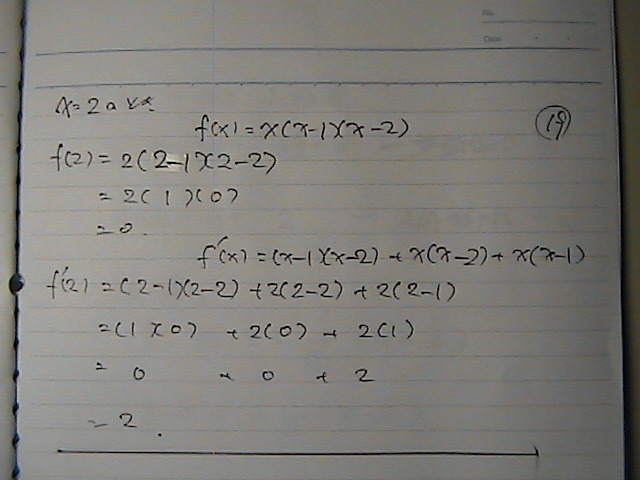 x = 2
f(x) = x(x-1)(x-2)
(19)
f(2) = 2(2-1)(2-2)
= 2(1)(0)
= 0.
f'(x) = (x-1)(x-2) + x(x-2) + x(x-1)
f'(2) = (2-1)(2-2) + 2(2-2) + 2(2-1)
= (1)(0) + 2(0) + 2(1)
= 0 + 0 + 2
= 2.